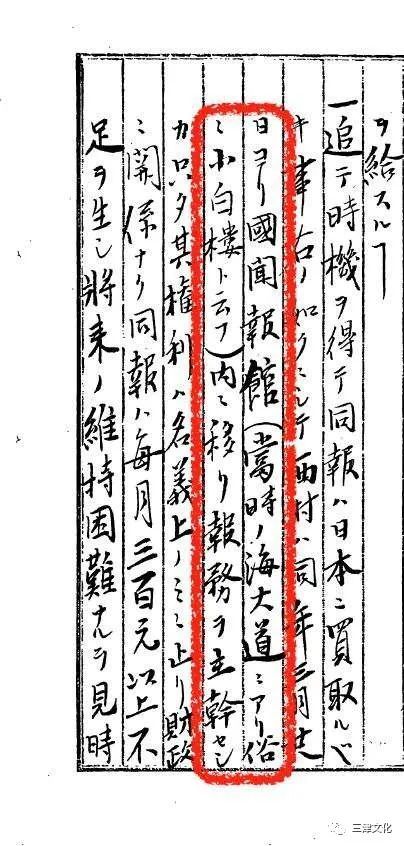 ヲ給スルヿ
一追テ時機ヲ得テ同報ハ日本ニ買取ルベ
キ事右ノ如クニシテ西村ハ同年三月
日ヨリ國聞報館(當時ノ海大道ニアリ俗
ニ小白樓ト云フ)内ニ移リ報務ヲ主幹セシ
カ只タ其権利ハ名義上ノミニ止リ財政
ニ関係ナク同報ハ毎月三百元以上不
足ヲ生シ將来ノ維持困難ナルヲ見時
三津文化